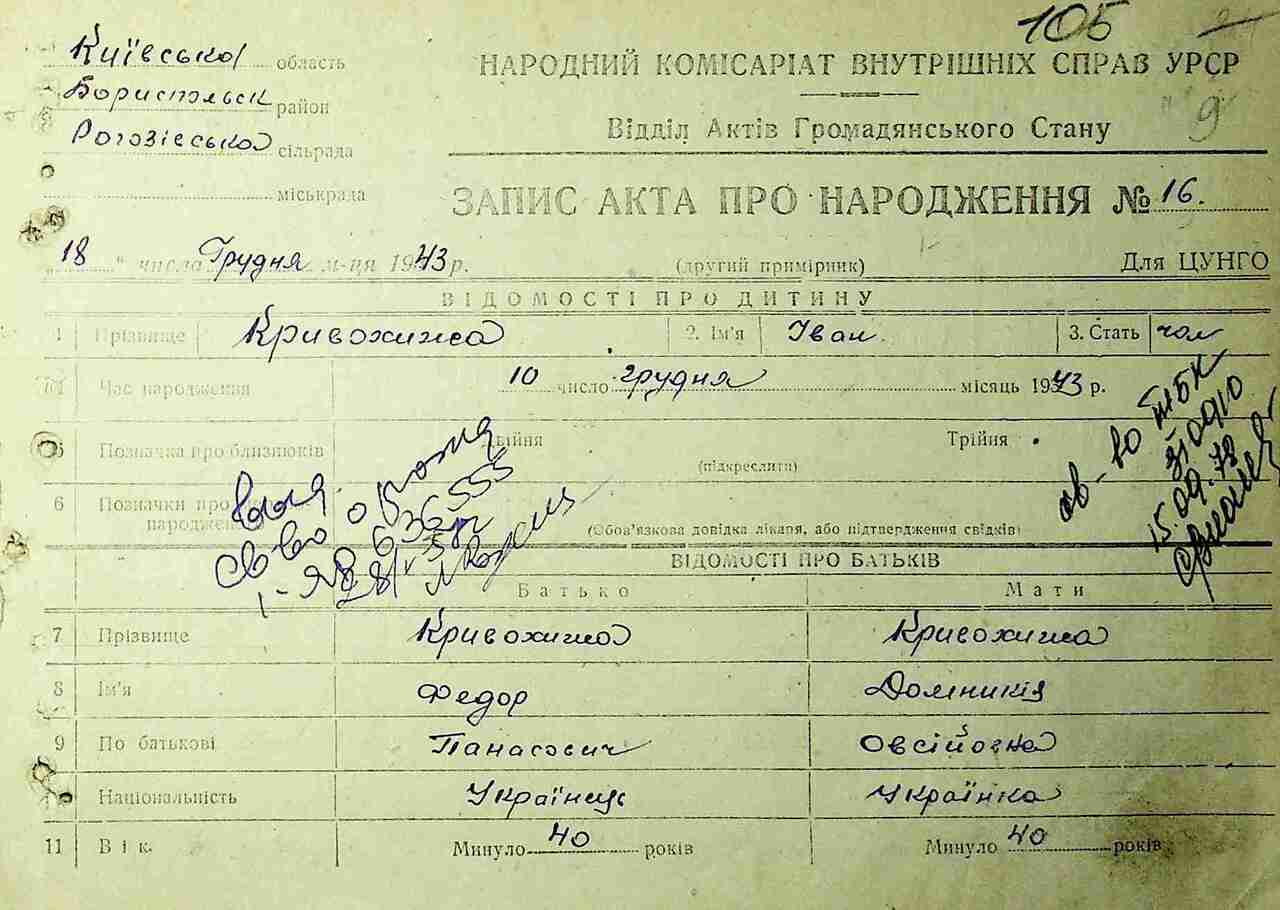 105
Київська область
НАРОДНИЙ КОМІСАРІАТ ВНУТРІШНІХ СПРАВ УРСР
Бориспольск район
9
Рогозівська сільрада
Відділ Актів Громадянського Стану
міськрада
ЗАПИС АКТА ПРО НАРОДЖЕННЯ № 16.
„18“ числа Грудня м-ця 1943 р.
(другий примірник)
Для ЦУНГО
ВІДОМОСТІ ПРО ДИТИНУ
1 Прізвище Кривохижа 2. Ім'я Іван. 3. Стать чол
Час народження 10 число грудня місяць 1943 р.
5 Позначка про близнюків Двійня Трійня
(підкреслити)
6 Позначки про
народжен
(Обов'язкова довідка лікаря, або підтвердження свідків)
св-во
636555
св-во
15.09.78
ВІДОМОСТІ ПРО БАТЬКІВ
Батько Мати
7 Прізвище Кривохижа Кривохижа
8 Ім'я Федор Домникія
9 По батькові Панасович Овсійовна
Національність Українець Українка
11 Вік. Минуло 40 років Минуло 40 років